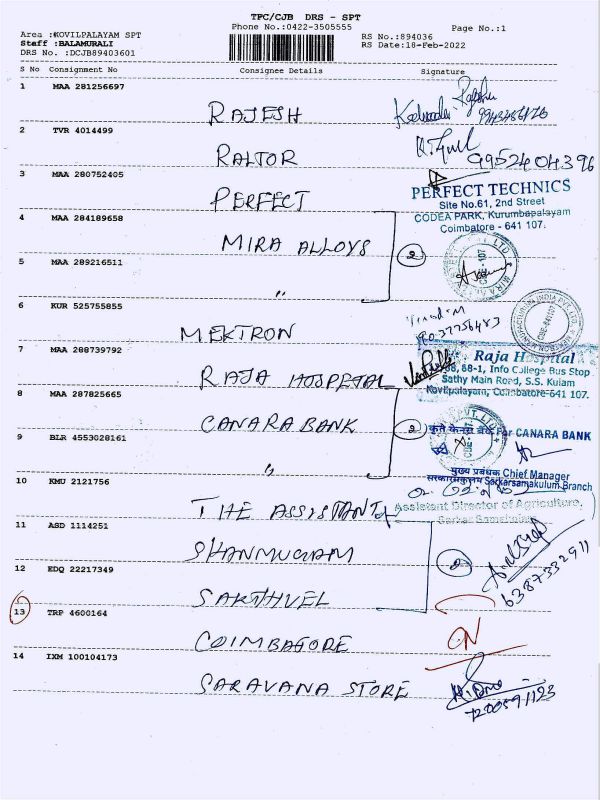 TPC/CJB DRS - SPT
Phone No.:0422-3505555
Page No.:1
Area :KOVILPALAYAM SPT
RS No.:894036
Staff :BALAMURALI
RS Date:18-Feb-2022
DRS No. :DCJB89403601
S No Consignment No Consignee Details Signature
1 MAA 281256697
RAJESH
2 TVR 4014499
RALTOR
9952404396
3 MAA 280752405
PERFECT
PERFECT TECHNICS
Site No.61, 2nd Street
CODEA PARK, Kurumbapalayam
Coimbatore - 641 107.
4 MAA 284189658
MIRA ALLOYS
2
5 MAA 289216511
"
6 KUR 525755855
MEKTRON
7 MAA 288739792
RAJA HOSPETAL
Raja Hospital
88-1, Info College Bus Stop
Sathy Main Road, S.S. Kulam
Kovilpalayam, Coimbatore-641 107.
8 MAA 287825665
CANARA BANK
2
कृते केनरा बैंक For CANARA BANK
9 BLR 4553028161
"
मुख्य प्रबंधक Chief Manager
Sarkarsamakulum Branch
10 KMU 2121756
THE ASSISTANT
Assistant Director of Agriculture,
11 ASD 1114251
SHANMUGAM
2
6387332911
12 EDQ 22217349
SAKTHVEL
13 TRP 4600164
COIMBATORE
14 IXM 100104173
SARAVANA STORE
7200591123